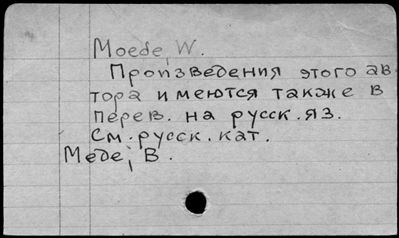 Moede, W.
Произведения этого ав
тора имеются также в
перев. на русск. яз.
См. русск. кат.
Меде, В.